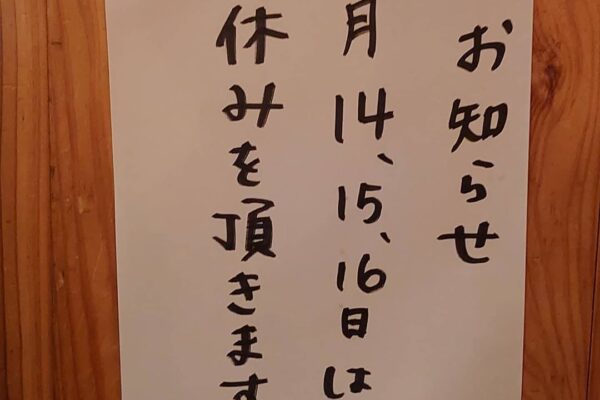 お知らせ
月14、15、16日は
休みを頂きます